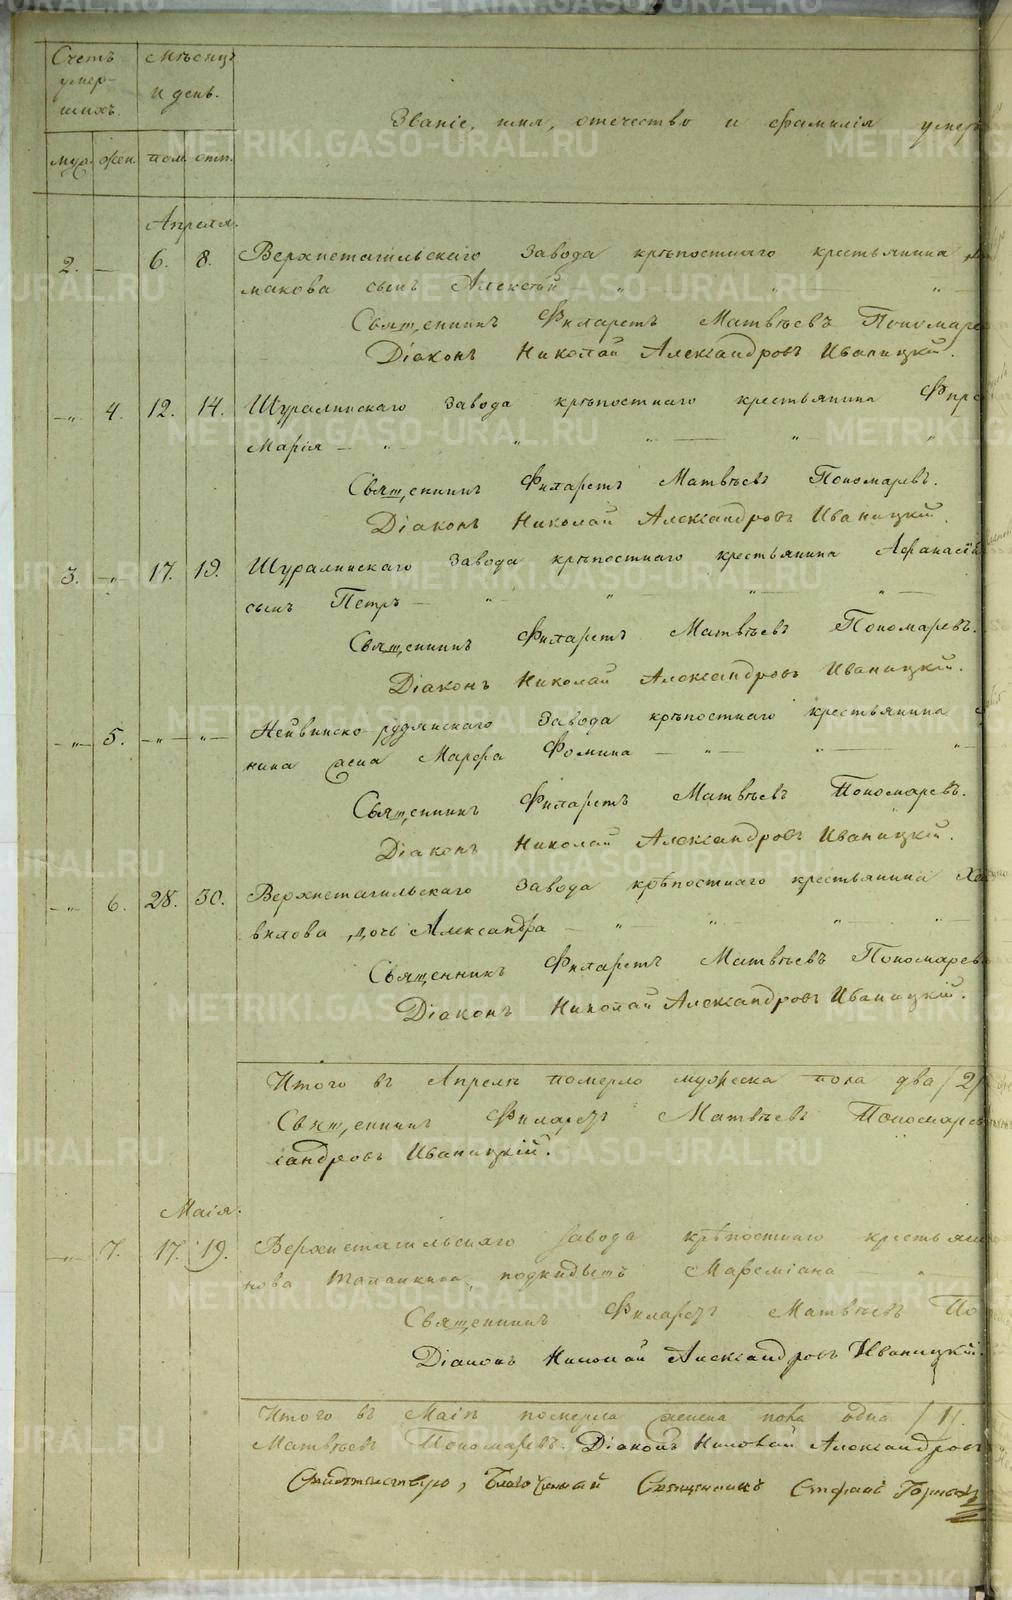 Счетъ умершихъ.
Мѣсяцъ и день.
Званіе, имя, отечество и фамилія умер
муж. жен. пом. отп.
Апреля.
2. — 6. 8. Верхнетагильскаго завода крѣпостнаго крестьянина
макова сынъ Алексѣй — „ „ „ —
Священникъ Филаретъ Матвѣевъ Пономаре
Діаконъ Николай Александровъ Иваницкій.
—„— 4. 12. 14. Шуралинскаго завода крѣпостнаго крестьянина
Марія — „ — „ „ — „ — „
Священникъ Филаретъ Матвѣевъ Пономаревъ.
Діаконъ Николай Александровъ Иваницкій.
3. —„— 17. 19. Шуралинскаго завода крѣпостнаго крестьянина Афанасія
сынъ Петръ — „ „ „ — „ —
Священникъ Филаретъ Матвѣевъ Пономаревъ.
Діаконъ Николай Александровъ Иваницкій.
—„— 5. —„— —„— Нейвинско-рудянскаго завода крѣпостнаго крестьянина
нина жена Марфа Фомина — „ — „ — „
Священникъ Филаретъ Матвѣевъ Пономаревъ.
Діаконъ Николай Александровъ Иваницкій.
—„— 6. 28. 30. Верхнетагильскаго завода крѣпостнаго крестьянина
вилова дочь Александра — „ — „ — „ — „
Священникъ Филаретъ Матвѣевъ Пономарев
Діаконъ Николай Александровъ Иваницкій.
Итого въ Апрелѣ померло мужеска пола два /2/
Священникъ Филаретъ Матвѣевъ Пономарев
сандровъ Иваницкій.
Маія.
—„— 7. 17. 19. Верхнетагильскаго завода крѣпостнаго крестьян
нова подкидышъ —
Священникъ Филаретъ Матвѣевъ По
Діаконъ Николай Александровъ Иваницкій.
Итого въ Маіѣ померла женска пола одна /1/.
Матвѣевъ Пономаревъ. Діаконъ Николай Александровъ
Благочинный Священникъ Стефанъ
METRIKI.GASO-URAL.RU